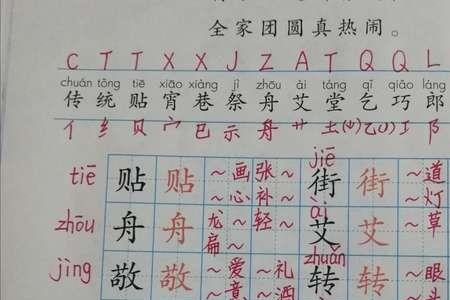 全家团圆真热闹。
C T T X X J Z A T Q Q L
chuán tǒng tiē xiāo xiàng jì zhōu ài táng qǐ qiǎo láng
传 统 贴 宵 巷 祭 舟 艾 堂 乞 巧 郎
亻 纟 贝 宀 巳 示 舟 艹 土(小) 乙(丿) 工 阝
jiē
tiē 贴 贴 ~画 张~ 街 街 ~道
~心 补~ ~灯
ài
zhōu 舟 舟 龙~ 轻~ 艾 艾 ~草
扁~
zhuǎn
jìng 敬 敬 ~爱 ~礼 转 转 ~眼
~意 ~酒